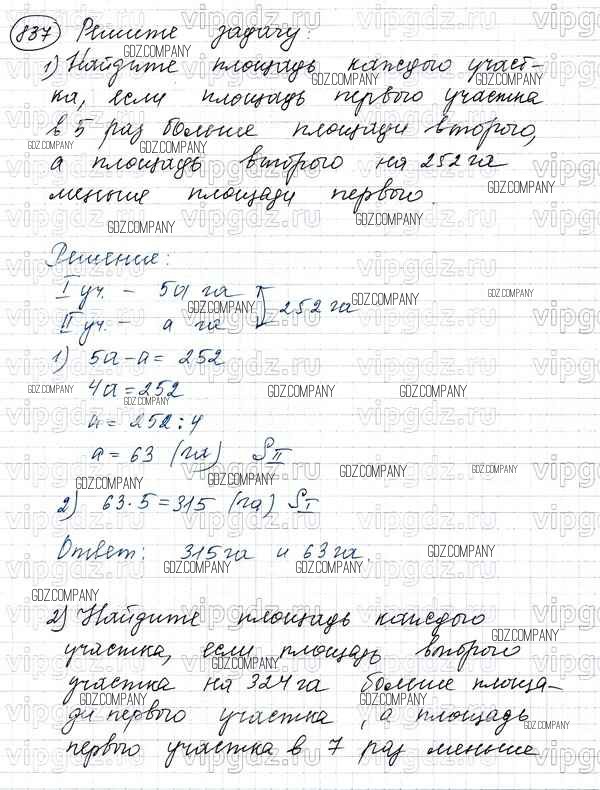 837 Решите задачу:
1) Найдите площадь каждого участ-
ка, если площадь первого участка
в 5 раз больше площади второго,
а площадь второго на 252 га
меньше площади первого.
Решение:
I уч. – 5a га
252 га
II уч. – a га
1) 5a – a = 252
4a = 252
a = 252 : 4
a = 63 (га) S II
2) 63 · 5 = 315 (га) S I
Ответ: 315 га и 63 га.
2) Найдите площадь каждого
участка, если площадь второго
участка на 324 га больше площа-
ди первого участка, а площадь
первого участка в 7 раз меньше
GDZ.COMPANY
vipgdz.ru